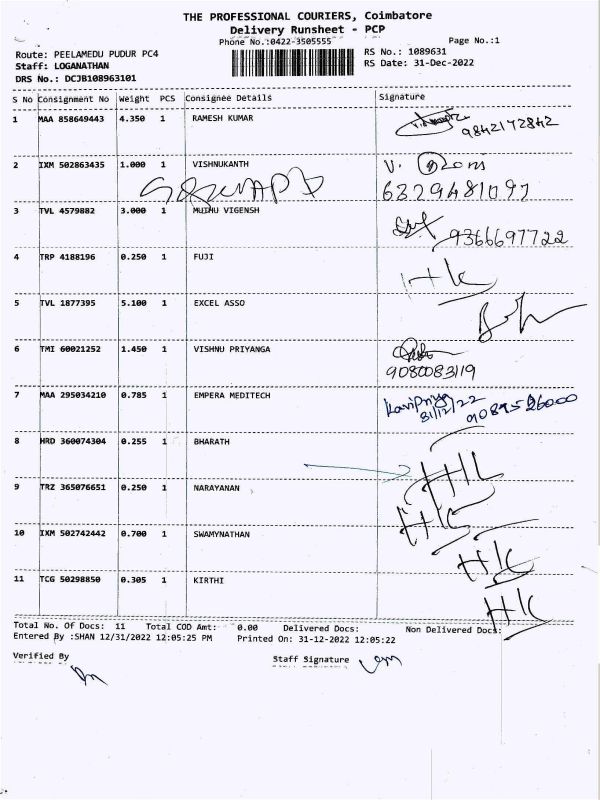 THE PROFESSIONAL COURIERS, Coimbatore
Delivery Runsheet - PCP
Phone No.:0422-3505555 Page No.:1
Route: PEELAMEDU PUDUR PC4 RS No.: 1089631
Staff: LOGANATHAN RS Date: 31-Dec-2022
DRS No.: DCJB108963101
S No Consignment No Weight PCS Consignee Details Signature
1 MAA 858649443 4.350 1 RAMESH KUMAR
9842172842
2 IXM 502863435 1.000 1 VISHNUKANTH V.
6329481097
3 TVL 4579882 3.000 1 MUTHU VIGENSH
9366697722
4 TRP 4188196 0.250 1 FUJI
H/C
5 TVL 1877395 5.100 1 EXCEL ASSO
6 TMI 60021252 1.450 1 VISHNU PRIYANGA
9080083119
7 MAA 295034210 0.785 1 EMPERA MEDITECH KaviPriya
31/12/22 9089526000
8 HRD 360074304 0.255 1 BHARATH
H/C
9 TRZ 365076651 0.250 1 NARAYANAN
H/C
10 IXM 502742442 0.700 1 SWAMYNATHAN
H/C
11 TCG 50298850 0.305 1 KIRTHI
H/C
Total No. Of Docs: 11 Total COD Amt: 0.00 Delivered Docs: Non Delivered Docs:
Entered By :SHAN 12/31/2022 12:05:25 PM Printed On: 31-12-2022 12:05:22
Verified By Staff Signature